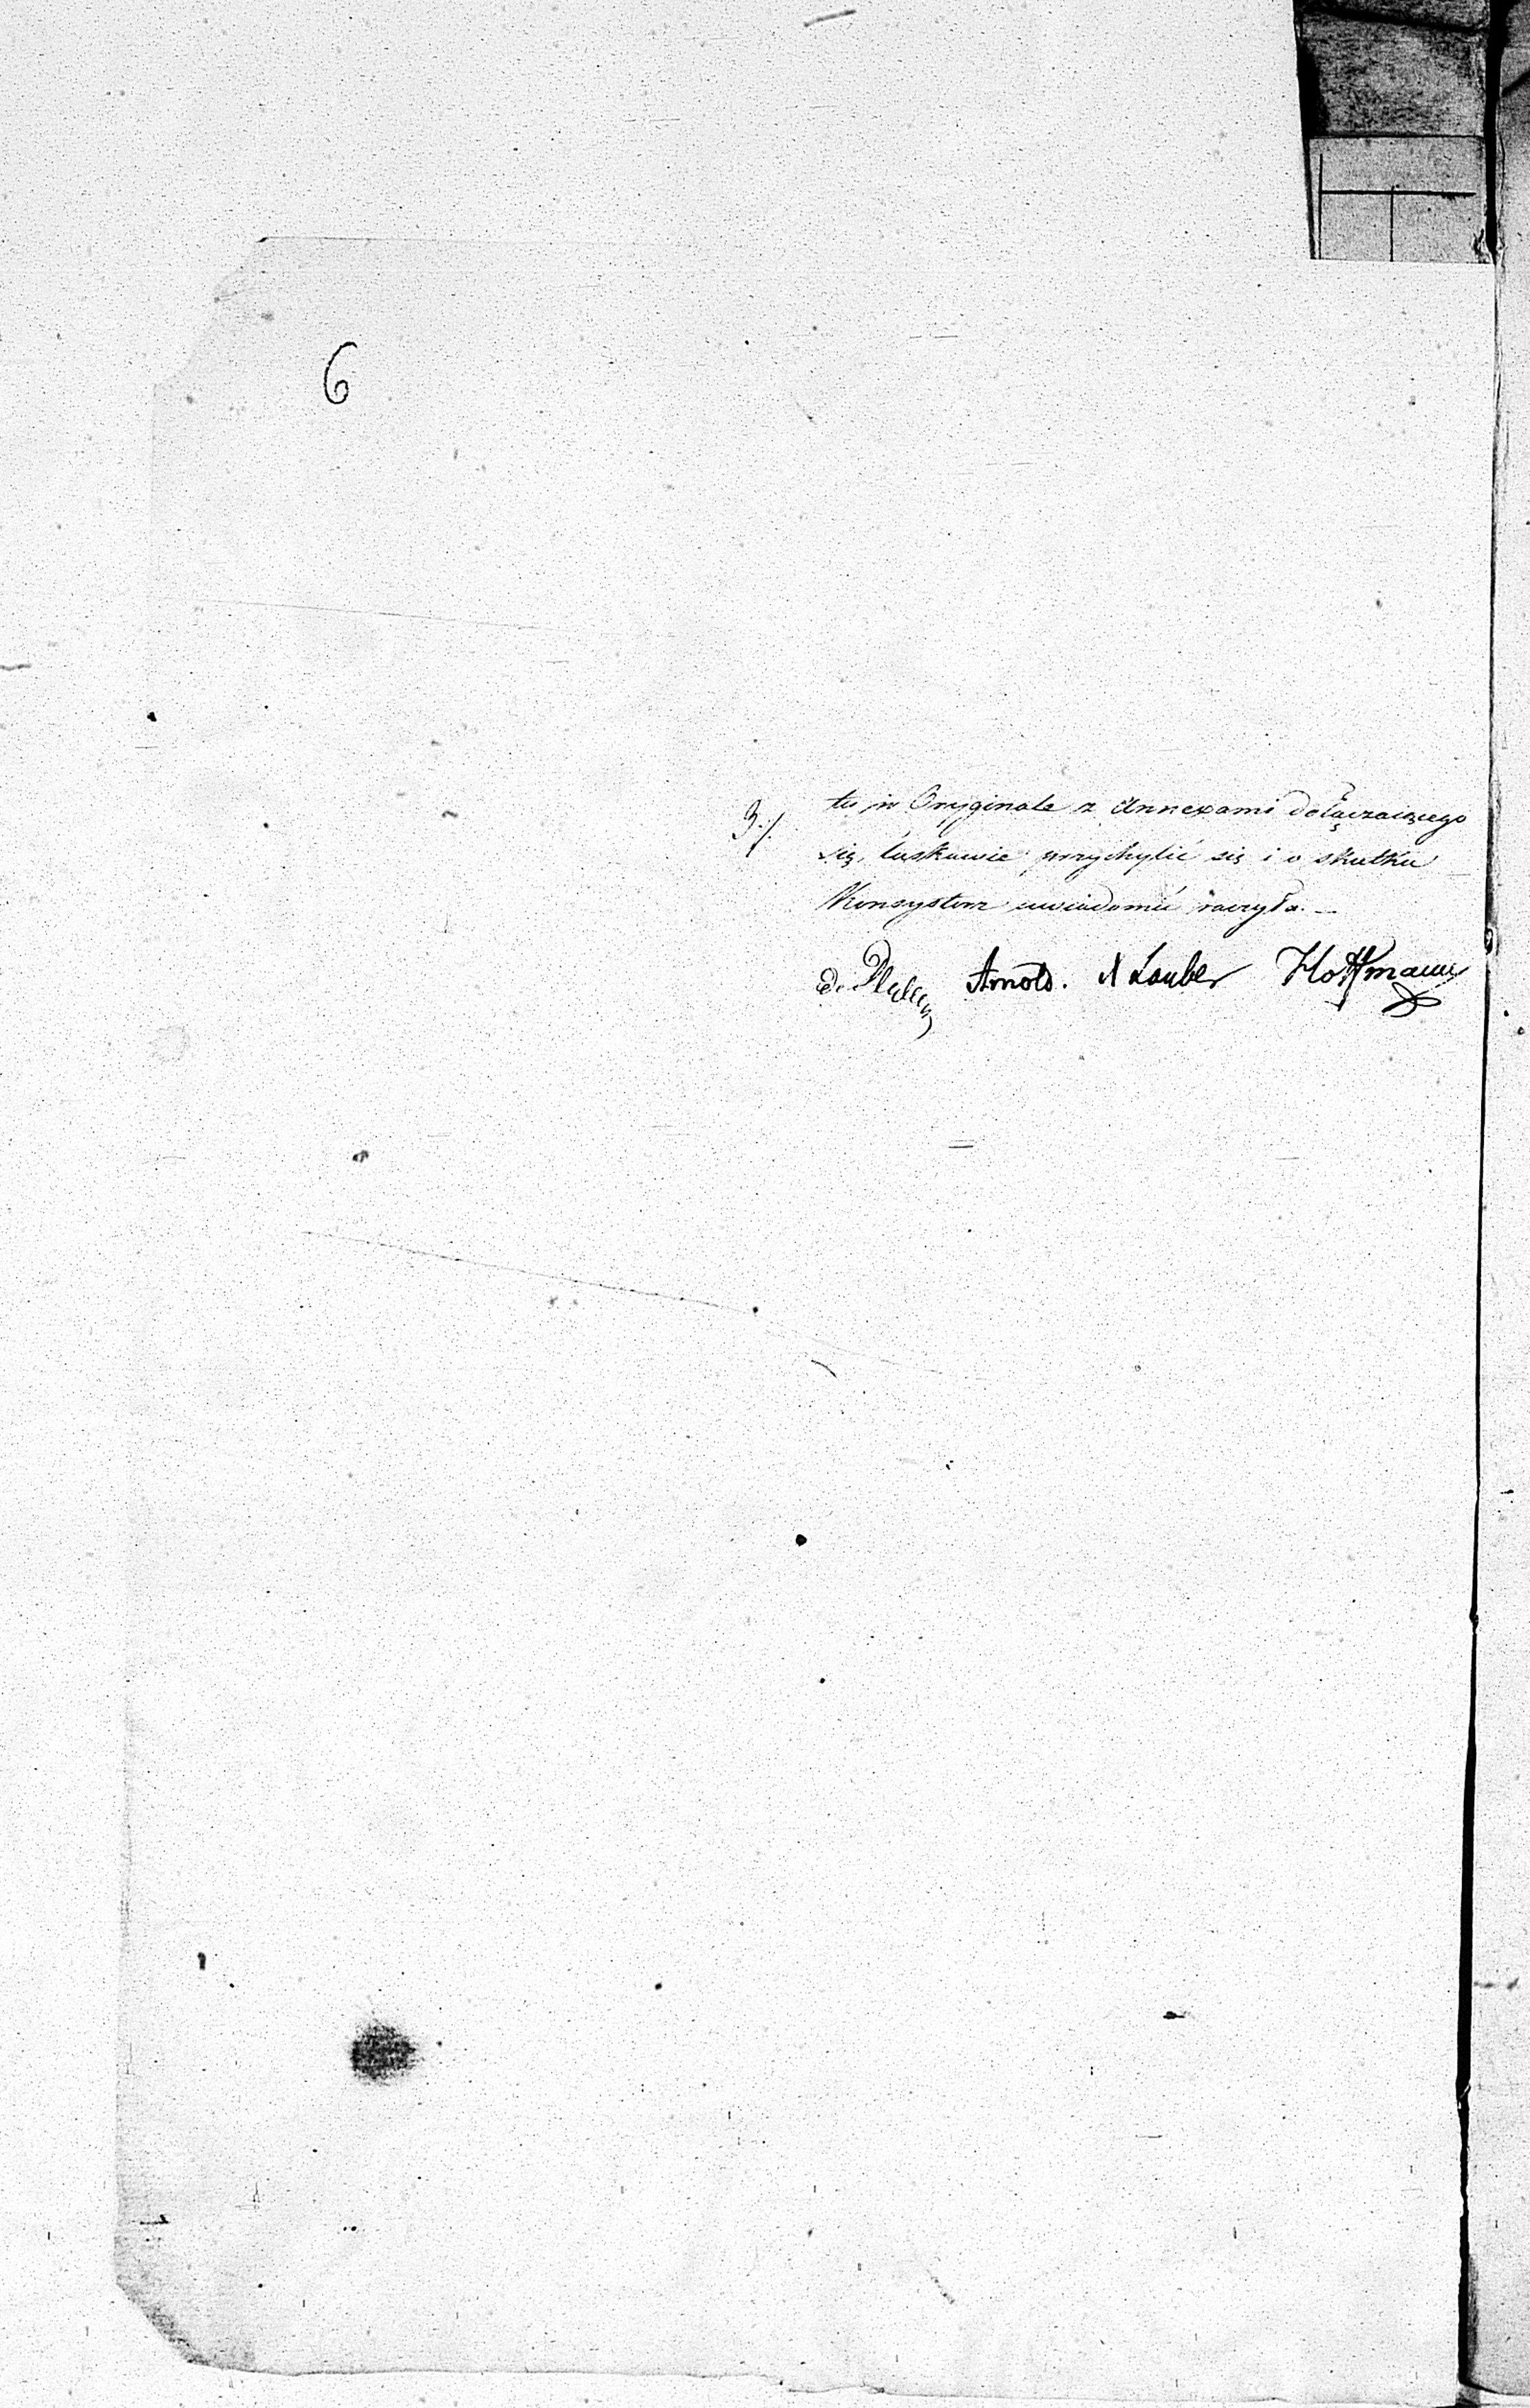 6
3./. tu in Oryginale z Annexami dołączaiącego
się, łaskawie przychylić się i o skutku
Konsystorz uwiadomić raczyła. —
de Arnold. Lauber Hoffmann